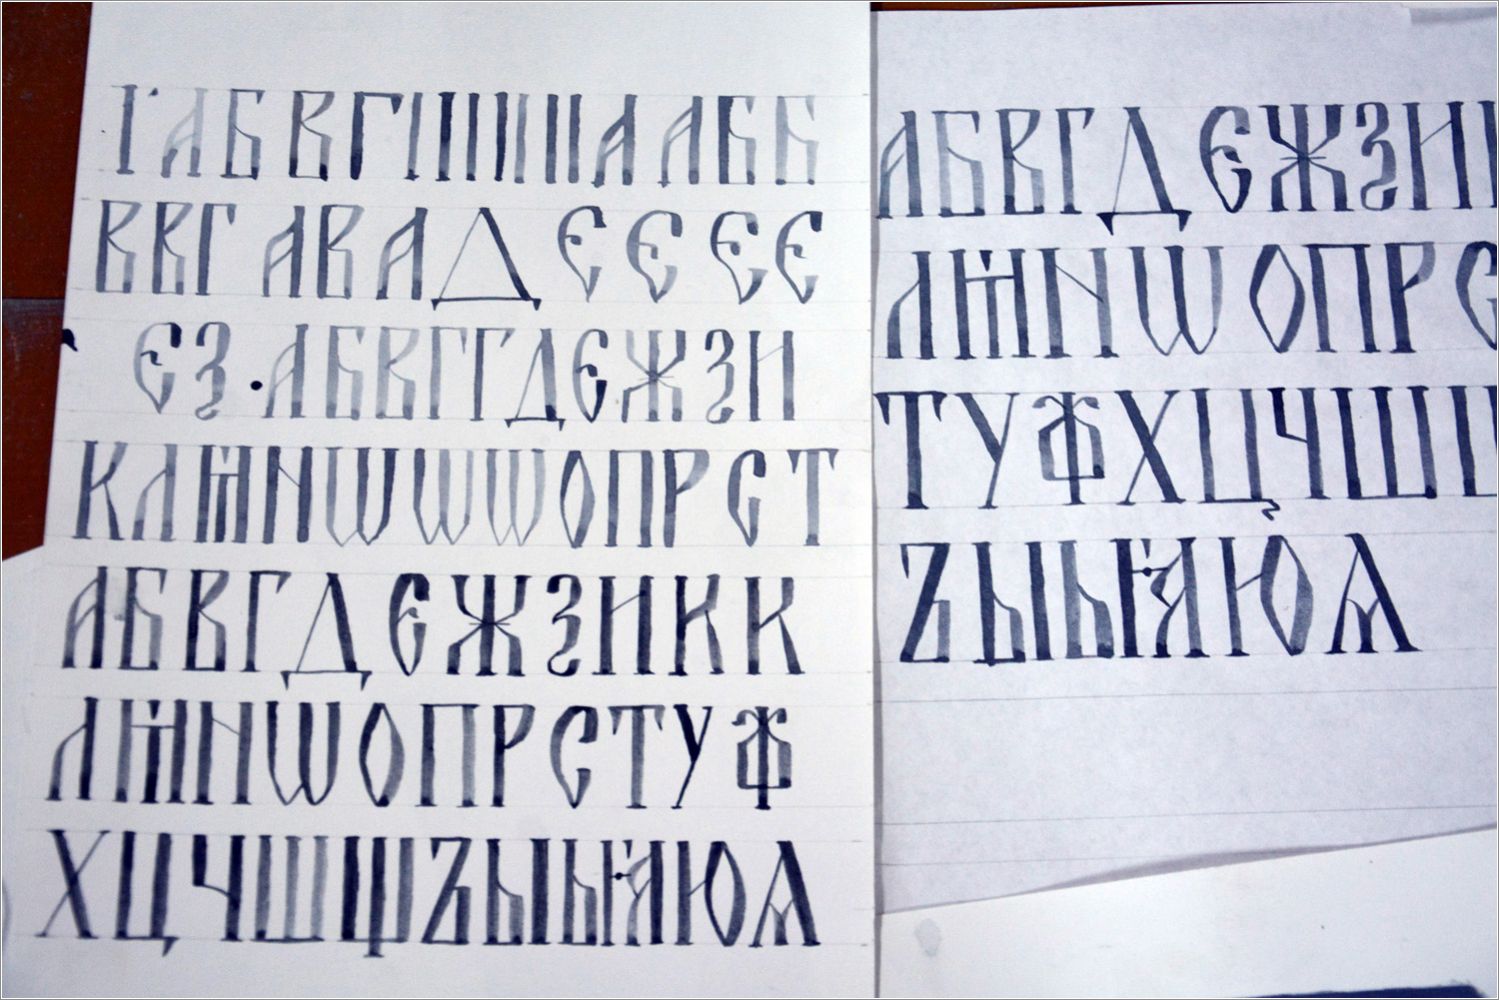 І А Б В Г І І І І І І І А А Б Б
В В Г А В А Д Є Є Є Є
Є З · А Б В Г Г Д Є Ж З И
К Л М N Ѡ Ѡ Ѡ О П Р С Т
А Б В Г Д Є Ж З И К К
Л М N Ѡ О П Р С Т У Ф
Х Ц Ч Ш Щ Ъ Ы Ь Ꙗ Ю Ѧ
А Б В Г Д Є Ж З И
Л М N Ѡ О П Р С
Т У Ф Х Ц Ч Ш
Ъ Ы Ь Ꙗ Ю Ѧ